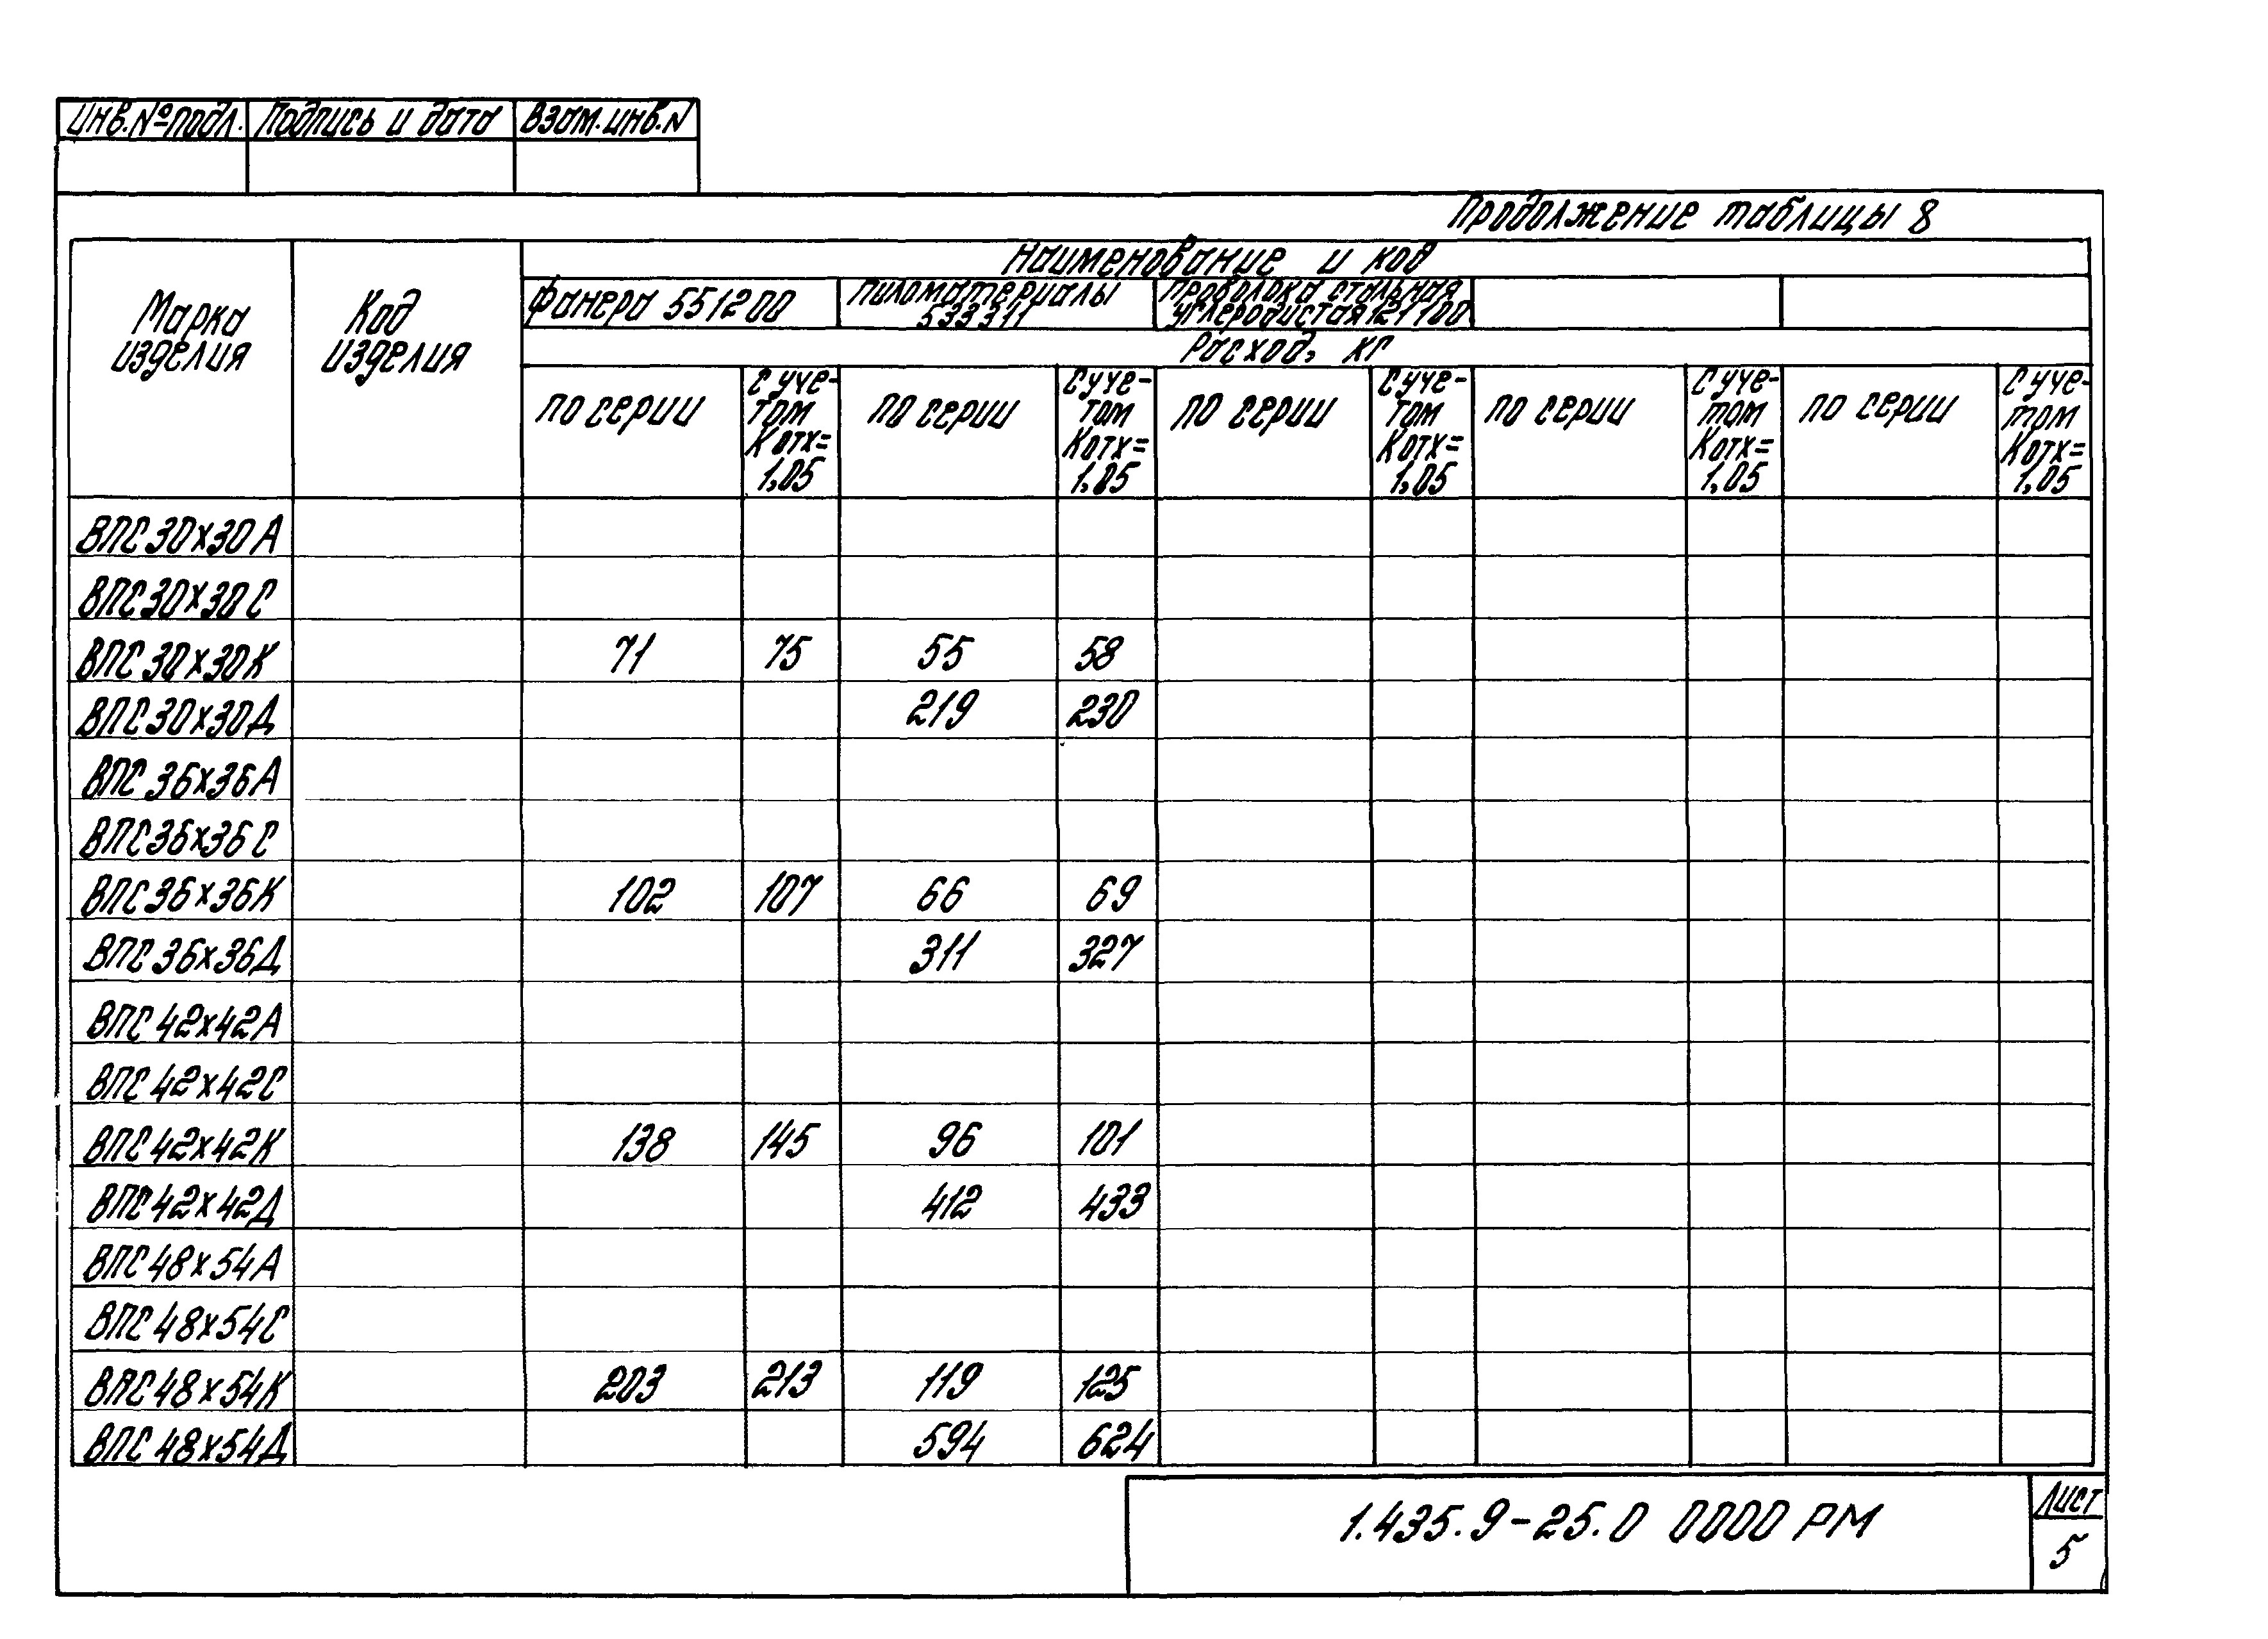 Инв.№подл. Подпись и дата Взам.инв.N
Продолжение таблицы 8
Марка изделия
Код изделия
Наименование и код
Фанера 551200
Пиломатериалы 533311
Проволока стальная углеродистая 121100
Расход, кг
по серии
С уче-
том
Котх=
1,05
по серии
С уче-
том
Котх=
1,05
по серии
С уче-
том
Котх=
1,05
по серии
С уче-
том
Котх=
1,05
по серии
С уче-
том
Котх=
1,05
ВПС30х30А
ВПС30х30С
ВПС30х30К 71 75 55 58
ВПС30х30Д 219 230
ВПС36х36А
ВПС36х36С
ВПС36х36К 102 107 66 69
ВПС36х36Д 311 327
ВПС42х42А
ВПС42х42С
ВПС42х42К 138 145 96 101
ВПС42х42Д 412 433
ВПС48х54А
ВПС48х54С
ВПС48х54К 203 213 119 125
ВПС48х54Д 594 624
1.435.9-25.0 0000 РМ
Лист
5